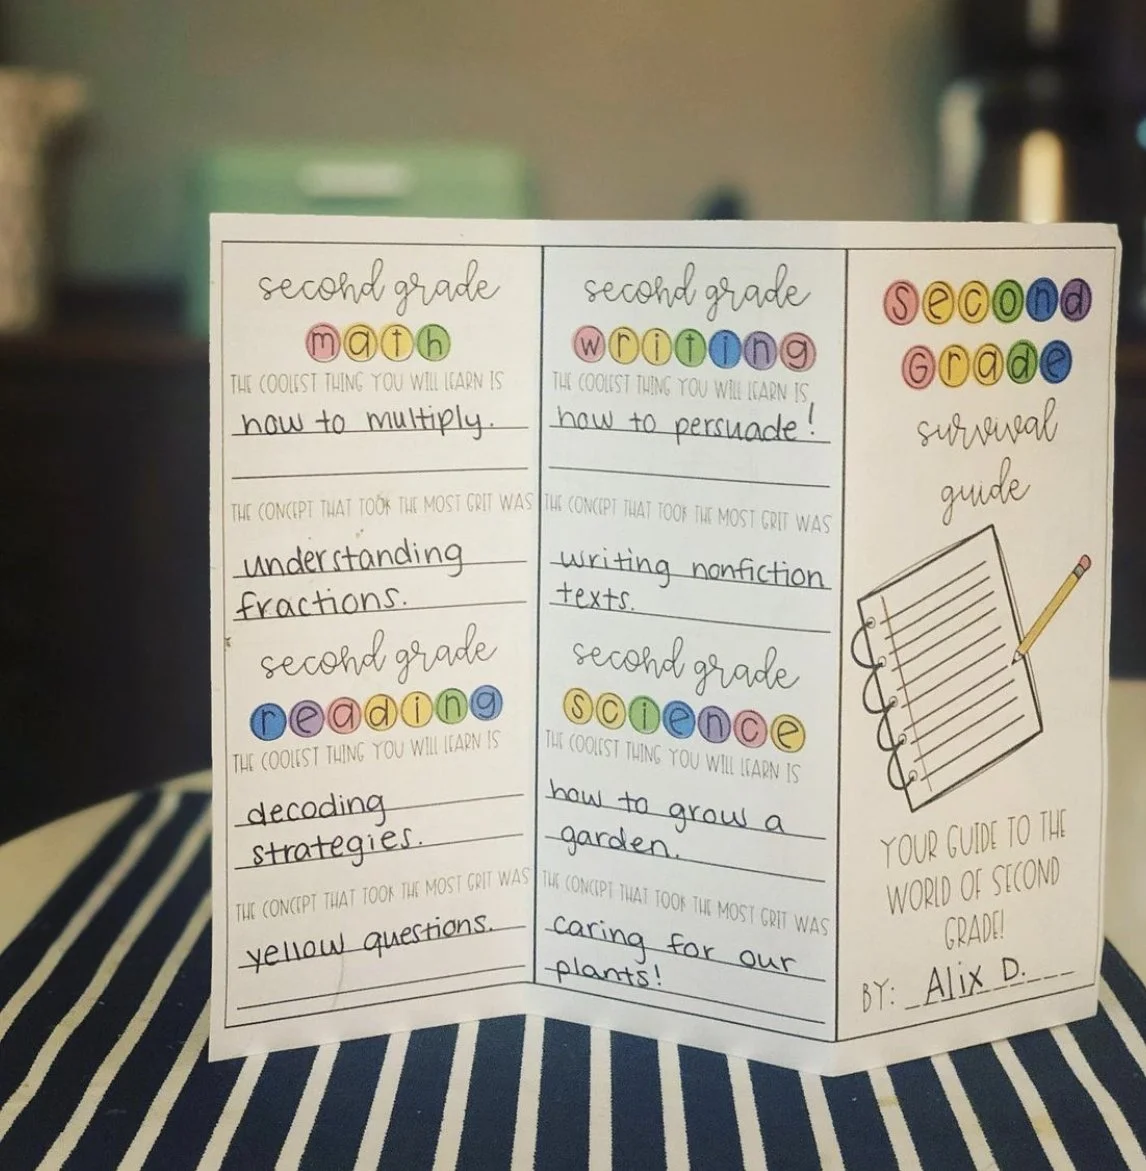 second grade
math
THE COOLEST THING YOU WILL LEARN IS
how to multiply.
THE CONCEPT THAT TOOK THE MOST GRIT WAS
understanding
fractions.
second grade
reading
THE COOLEST THING YOU WILL LEARN IS
decoding
strategies.
THE CONCEPT THAT TOOK THE MOST GRIT WAS
yellow questions.
second grade
writing
THE COOLEST THING YOU WILL LEARN IS
how to persuade!
THE CONCEPT THAT TOOK THE MOST GRIT WAS
writing nonfiction
texts.
second grade
science
THE COOLEST THING YOU WILL LEARN IS
how to grow a
garden.
THE CONCEPT THAT TOOK THE MOST GRIT WAS
caring for our
plants!
Second
Grade
survival
guide
YOUR GUIDE TO THE
WORLD OF SECOND
GRADE!
BY: Alix D.